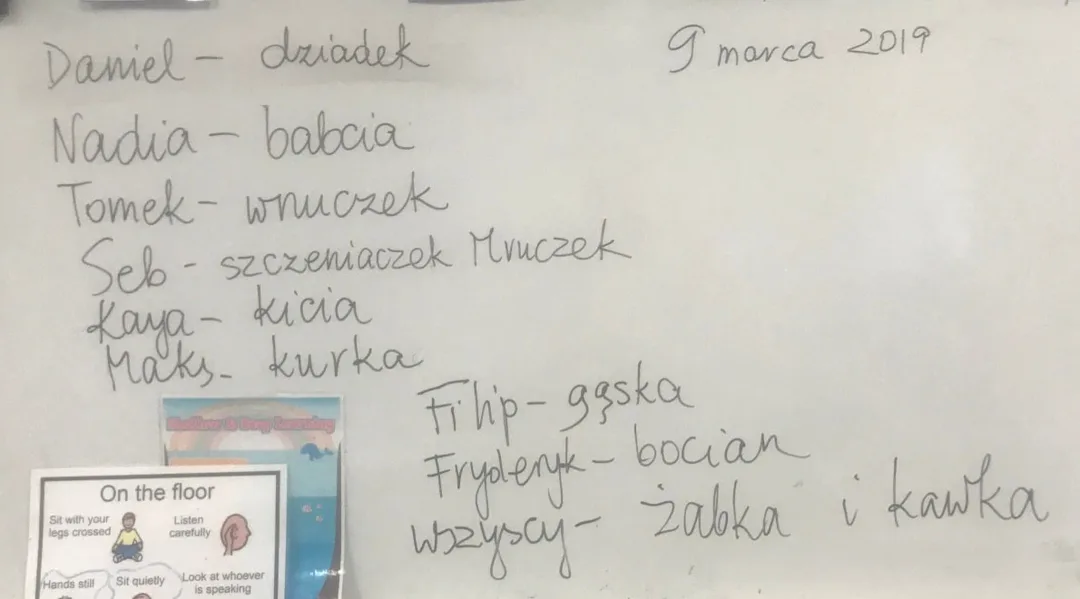 Daniel - dziadek
9 marca 2019
Nadia - babcia
Tomek - wnuczek
Seb - szczeniaczek Mruczek
Kaya - kicia
Maks - kurka
Filip - gąska
Fryderyk - bocian
wszyscy - żabka i kawka
On the floor
Sit with your
legs crossed
Listen
carefully
Hands still
Sit quietly
Look at whoever
is speaking